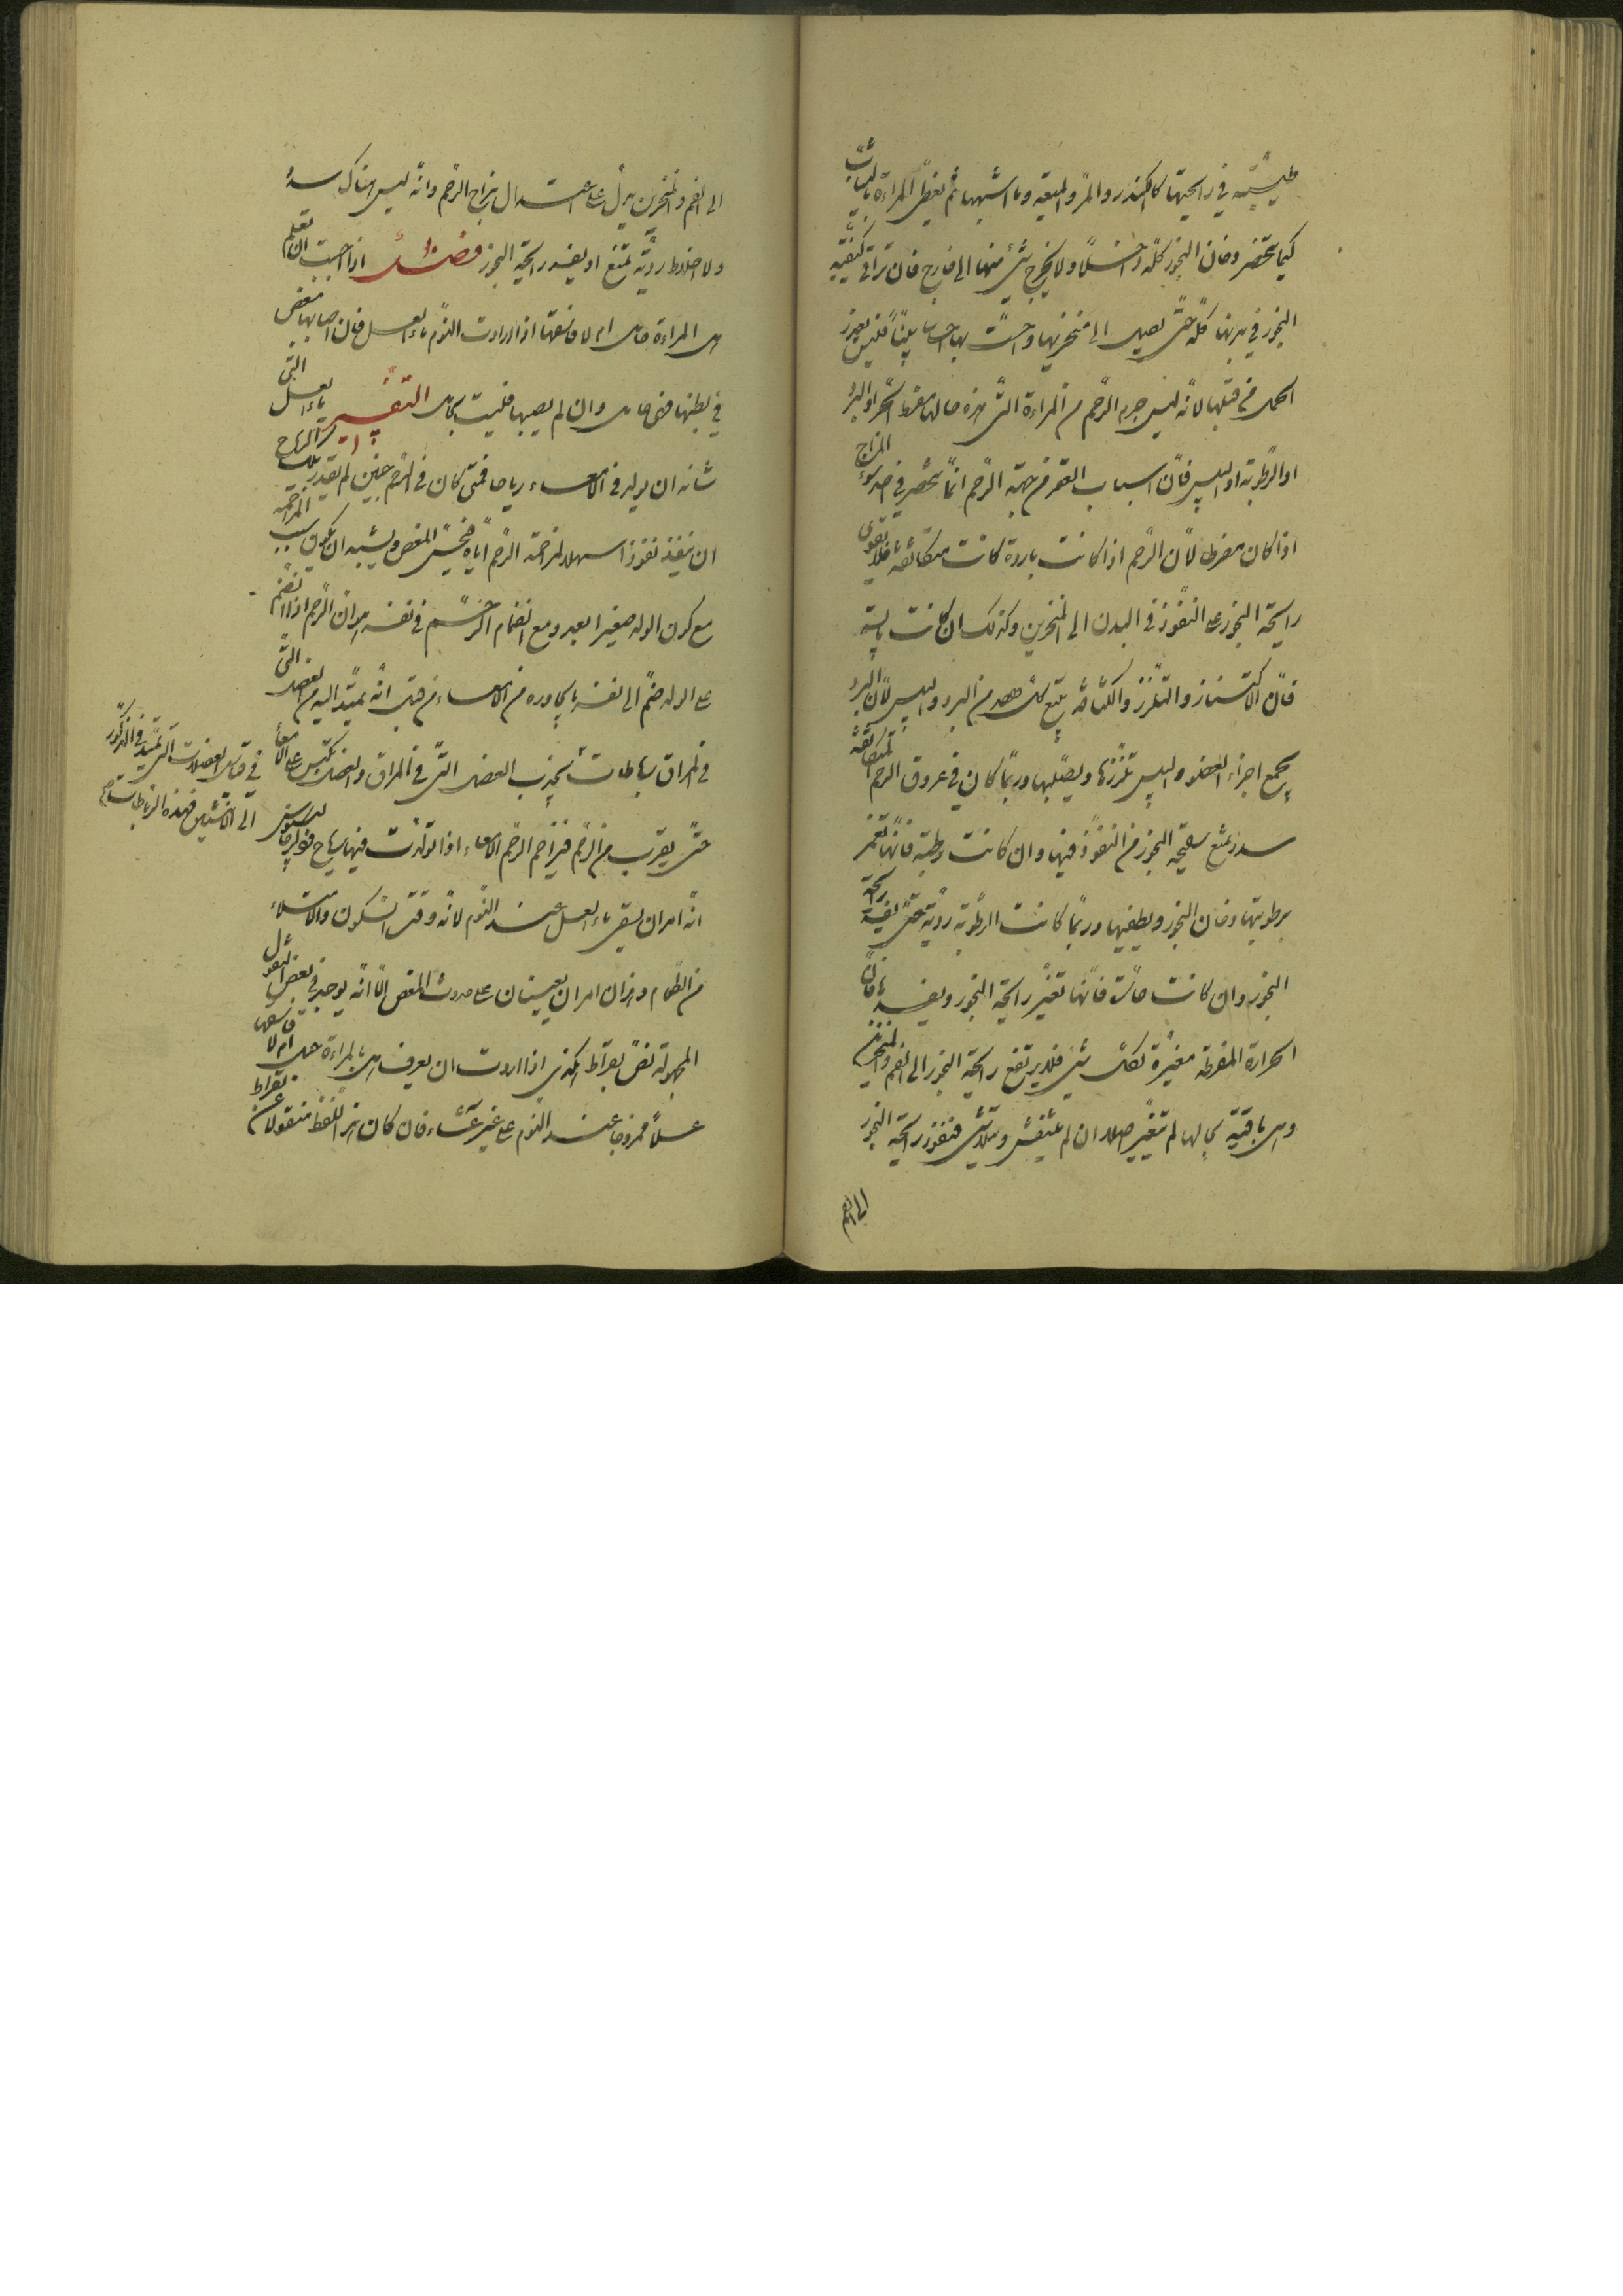 طيبة في رايحتها كالكندر والمر والميعة وما اشبهها ثم يغطى المراءة بالثياب
كيما تحصر دخان البخور كله داخلاً ولا يخرج شئ منها الى خارج فان تراقى كيفية
البخور في بدنها كله حتى تصل الى منخريها واحست بها احساسا بيّناً فليس تعذر
الحمل من قبلها لانه ليس جرم الرحم من المراءة التى هذه حالها مفرط الحر او البرد
او الرطوبة او اليبس فان اسباب العقر من جهة الرحم انما تنحصر في احد سوء المزاج
اذا كان مفرطا لان الرحم اذا كانت باردة كانت متكاثفة فلا تقوى
رايحة البخور على النفوذ في البدن الى المنخرين وكذلك ان كانت يابسة
فان الاكتناز والتلزز والكثافة يتبع كل واحد من البرد واليبس لان البرد
يجمع اجزاء العضو واليبس تلززها ويصلبها وربما كان في عروق الرحم المتكاثفة
سدد تمنع رايحة البخور من النفوذ فيها وان كانت رطبة فانها تغمر
برطوبتها دخان البخور ويطفيها وربما كانت الرطوبة ردية حتى يفسد رايحة
البخور وان كانت حارة فانها تغير رايحة البخور ويفسدها فان
الحرارة المفرطة مغيرة لكل شئ فلا يرتفع رايحة البخور الى الفم والمنخرين
وهى باقية بحالها لم تتغير اصلا ان لم تتفش وتتلاش فنفوذ رايحة البخور
الى الفم
الى الفم والمنخرين يدل على اعتدال مزاج الرحم وانه ليس هناك سدد
ولا اخلاط ردية تمنع او يفسد رايحة البخور فصل اذا احببت ان تعلم
هل المراءة حامل ام لا فاسقها اذا ارادت النوم ماء العسل فان اصابها مغص
في بطنها فهى حامل وان لم يصبها فليست بحامل التفسير ماء العسل التى
شانه ان يولد في الامعاء رياحا فمتى كان في الرحم جنين لم يقدر تلك الرياح
ان ينفذ نفوذا سهلا لمزاحمة الرحم اياه فيحس المغص ويشبه ان يكون سبب المزاحمة
مع كون الولد صغيرا بعد ومع انضمام الرحم في نفسه هو ان الرحم اذا انضم
على الولد ضم الى نفسه ما يجاوره من الامعاء من قبل انه يمتد اليه من العضل التى
في المراق رباطات تجذب العضل التى في المراق والعضل تكبس على الامعاء
حتى يقرب من الرحم فيزاحم الرحم الامعاء اذا تولدت فيها رياح قول جالينوس
انه امر ان يسقى ماء العسل عند النوم لانه وقت السكون والامتلاء
من الطعام وهذان امران يعينان على حدوث المغص الا انه يوجد في بعض النقول
المجهولة نص بقراط هكذى اذا اردت ان يعرف هل المراءة حبلى ام لا فاسقها
عسلاً ممزوجا عند النوم على غير عشاء فان كان هذا اللفظ منقولا عن بقراط
في قياس العضلات التى تمتد في الذكور
الى الانثيين فهذه الرباطات صح